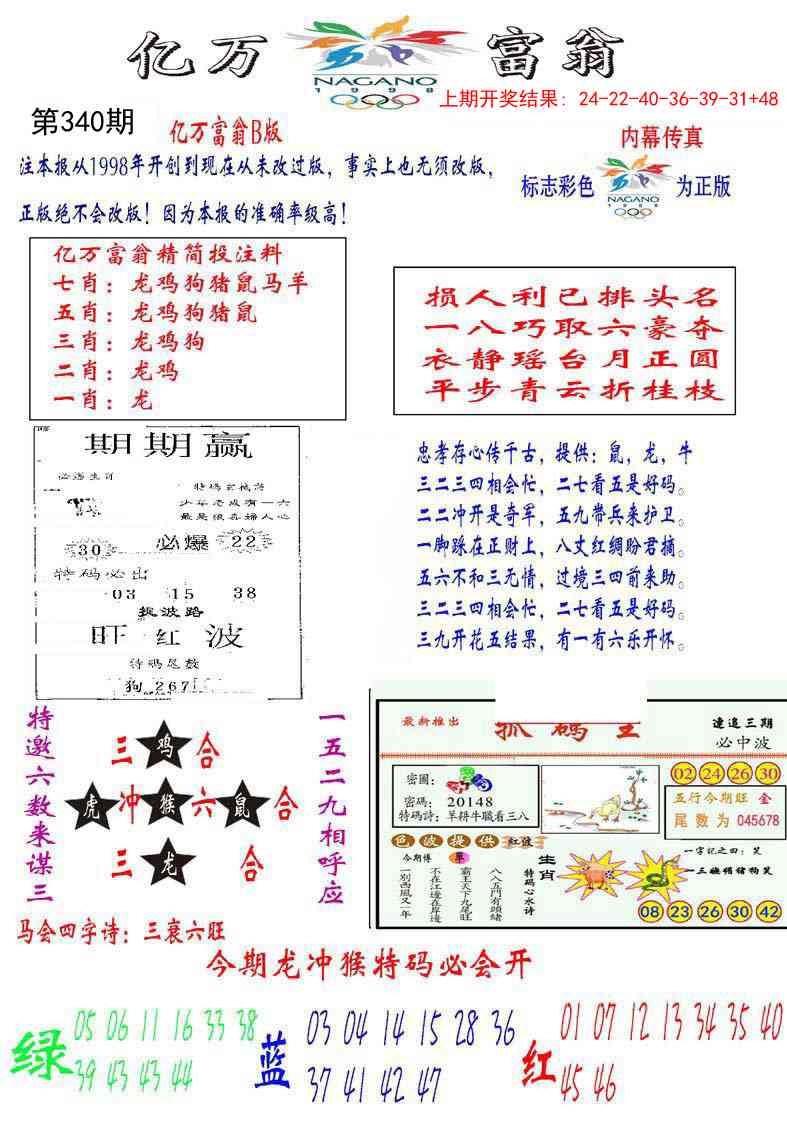 亿万
富翁
NAGANO
1998
上期开奖结果: 24-22-40-36-39-31+48
第340期
亿万富翁B版
内幕传真
注本报从1998年开创到现在从未改过版，事实上也无须改版，
正版绝不会改版！因为本报的准确率级高！
标志彩色
NAGANO
1998
为正版
亿万富翁精简投注料
七肖：龙鸡狗猪鼠马羊
五肖：龙鸡狗猪鼠
三肖：龙鸡狗
二肖：龙鸡
一肖：龙
损人利已排头名
一八巧取六豪夺
衣静瑶台月正圆
平步青云折桂枝
期期赢
必选生肖
特码玄机诗
少年老成有一六
最是狠毒妇人心
30
必爆
22
特码必出
03 15 38
捉波路
旺红波
特码尾数
狗 267
忠孝存心传千古，提供：鼠，龙，牛
三二三四相会忙，二七看五是好码。
二二冲开是奇军，五九带兵来护卫。
一脚踩在正财上，八丈红绸盼君摘。
五六不和三无情，过境三四前来助。
三二三四相会忙，二七看五是好码。
三九开花五结果，有一有六乐开怀。
特邀六数来谋三
三鸡合
虎冲猴六鼠合
三龙合
一五二九相呼应
马会四字诗：三衰六旺
最新推出
抓码王
連追三期
必中波
密圈：
密碼： 20148
特碼詩：羊耕牛職看三八
02 24 26 30
五行今期旺 金
尾数为 045678
色波提供
红波
今期博
單
一別西風又一年
不在江邊在岸邊
霸王天下九尾旺
八八五門有頭緒
特码心水诗
生肖
一字记之曰：笑
08 23 26 30 42
今期龙冲猴特码必会开
绿
05 06 11 16 33 38
39 43 43 44
蓝
03 04 14 15 28 36
37 41 42 47
红
01 07 12 13 34 35 40
45 46